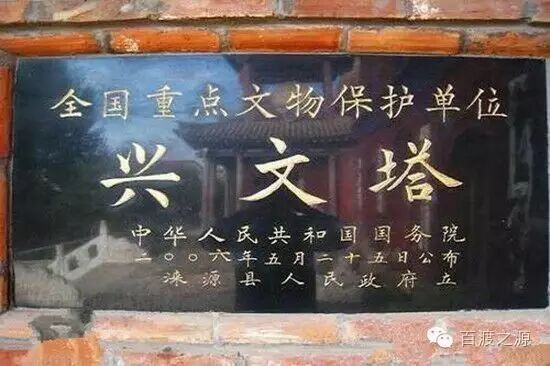 全国重点文物保护单位
兴文塔
中华人民共和国国务院
二〇〇六年五月二十五日公布
涞源县人民政府立
百渡之源